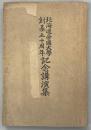 北海道帝國大學
創基五十周年記念講演集